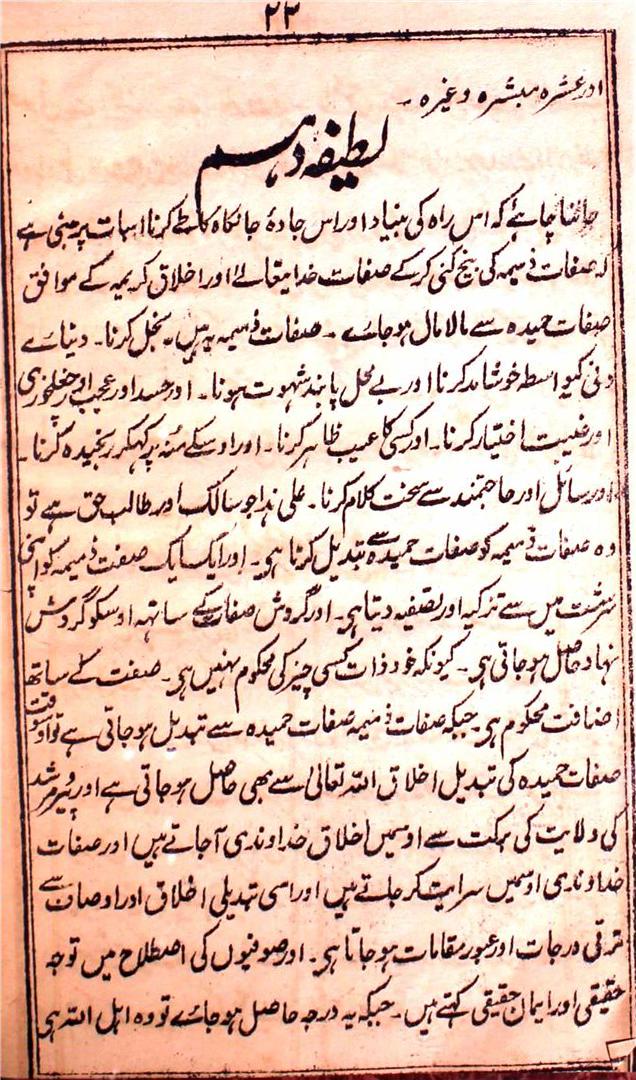 ۲۳
اور عشرہ مبشرہ وغیرہ ۔
لطیفہ دہم
جاننا چاہئے کہ اس راہ کی بنیاد اور اس جادۂ جانکاہ کا طے کرنا اسبات پر مبنی ہے
کہ صفات ذمیمہ کی بیخ کنی کرکے صفات خدایتعالےٰ اور اخلاق کریمہ کے موافق
صفات حمیدہ سے مالا مال ہوجائے ۔ صفات ذمیمہ یہ ہیں۔ بخل کرنا۔ دنیائے
دنی کیواسطہ خوشامد کرنا اور بے محل پابند شہوت ہونا۔ اور حسد اور عجب اور چغلخوری
اور غیبت اختیار کرنا۔ اور کسی کا عیب ظاہر کرنا۔ اور اوسکے منہ پر کہکر رنجیدہ کرنا۔
اور سائل اور حاجتمند سے سخت کلام کرنا۔ علی ہذا جو سالک اور طالب حق ہے تو
وہ صفات ذمیمہ کو صفات حمیدہ سے تبدیل کرتا ہی۔ اور ایک ایک صفت ذمیمہ کو اپنی
سرشت میں سے تزکیہ اور تصفیہ دیتا ہی۔ اور گردش صفات کے ساتھہ اوسکو گردش
نہاد حاصل ہوجاتی ہی۔ کیونکہ خود ذات کسی چیز کی محکوم نہیں ہی۔ صفت کے ساتھ
اضافت محکوم ہی۔ جبکہ صفات ذمیمہ صفات حمیدہ سے تبدیل ہوجاتی ہے تو اوسوقت
صفات حمیدہ کی تبدیل اخلاق اللہ تعالیٰ سے بھی حاصل ہوجاتی ہے اور پیر و مرشد
کی ولایت کی برکت سے اوسمیں اخلاق خداوندی آجاتے ہیں اور صفات
خداوندی اوسمیں سرایت کرجاتے ہیں اور اسی تبدیلی اخلاق اور اوصاف سے
ترقی درجات اور عبور مقامات ہوجاتا ہی۔ اور صوفیوں کی اصطلاح میں توجہ
حقیقی اور ایمان حقیقی کہتے ہیں۔ جبکہ یہ درجہ حاصل ہوجائے تو وہ اہل اللہ ہی